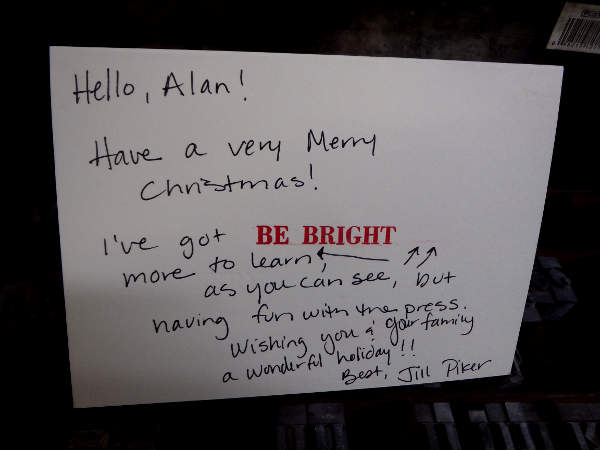 Hello, Alan!
Have a very Merry
Christmas!
I've got BE BRIGHT
more to learn,
as you can see, but
having fun with the press.
Wishing you & your family
a wonderful holiday!!
Best, Jill Piker